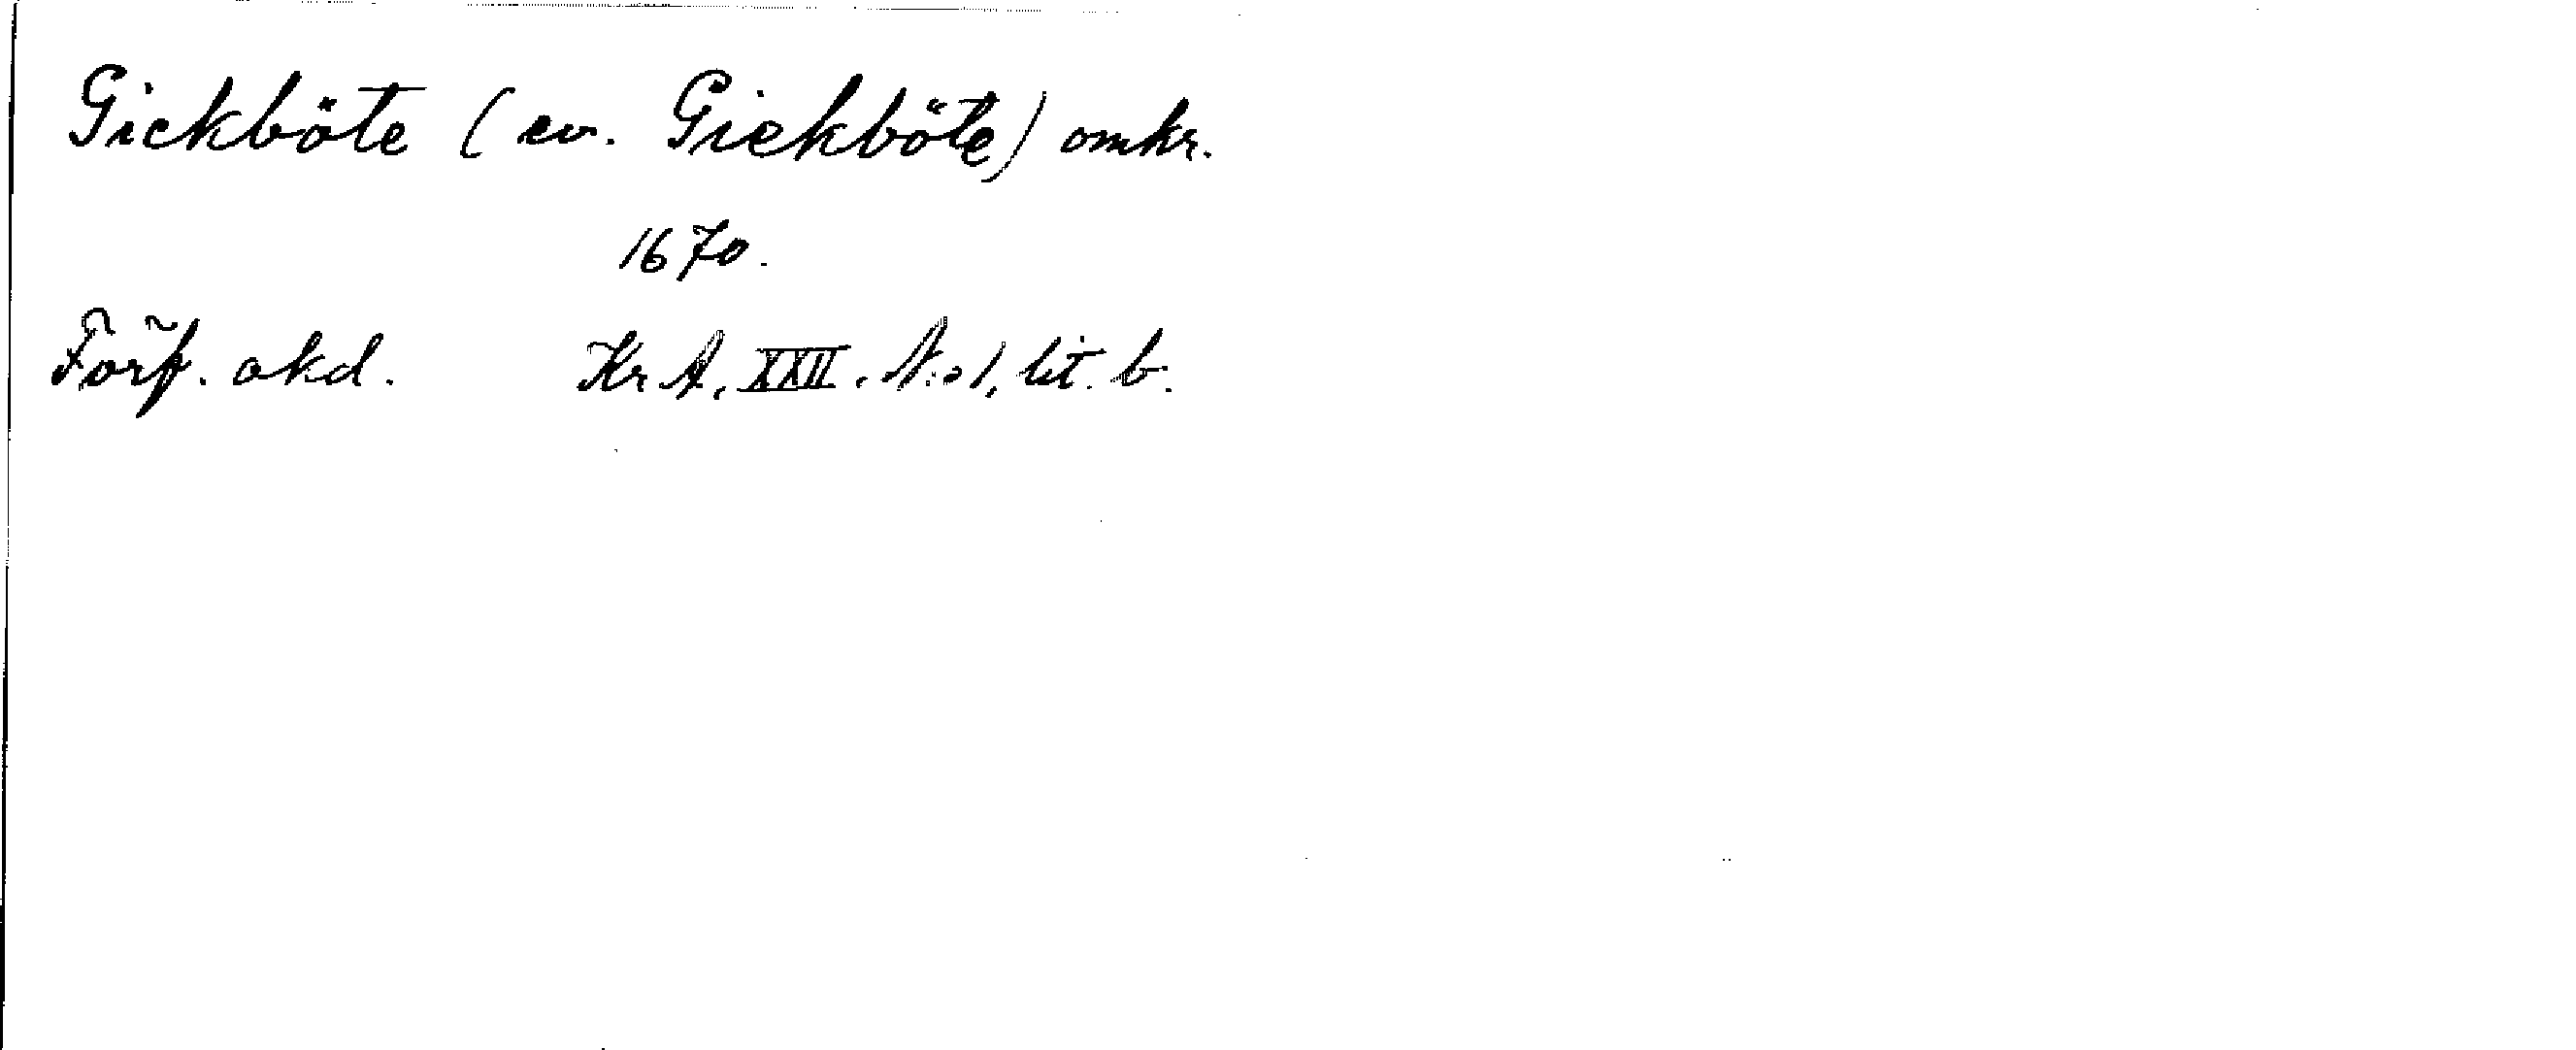 Gickböte (ev. Giekböte) omkr.
1670.
Förf. okd. Kr A, XXII. N:o 1, lit. b.